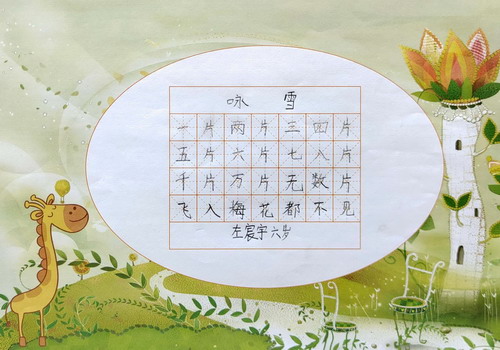 咏雪
一片两片三四片
五片六片七八片
千片万片无数片
飞入梅花都不见
左宸宇六岁